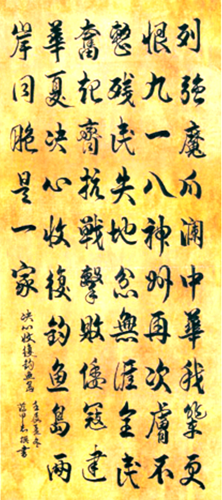 列強魔爪瀾中華我輩更
恨九一八神州再次膚不
整残民失地忿無涯全民
奮起齊抗戰擊敗倭冦建
華夏决心收復釣魚島兩
岸同胞是一家
决心收復釣魚島
壬辰孟冬
撰書